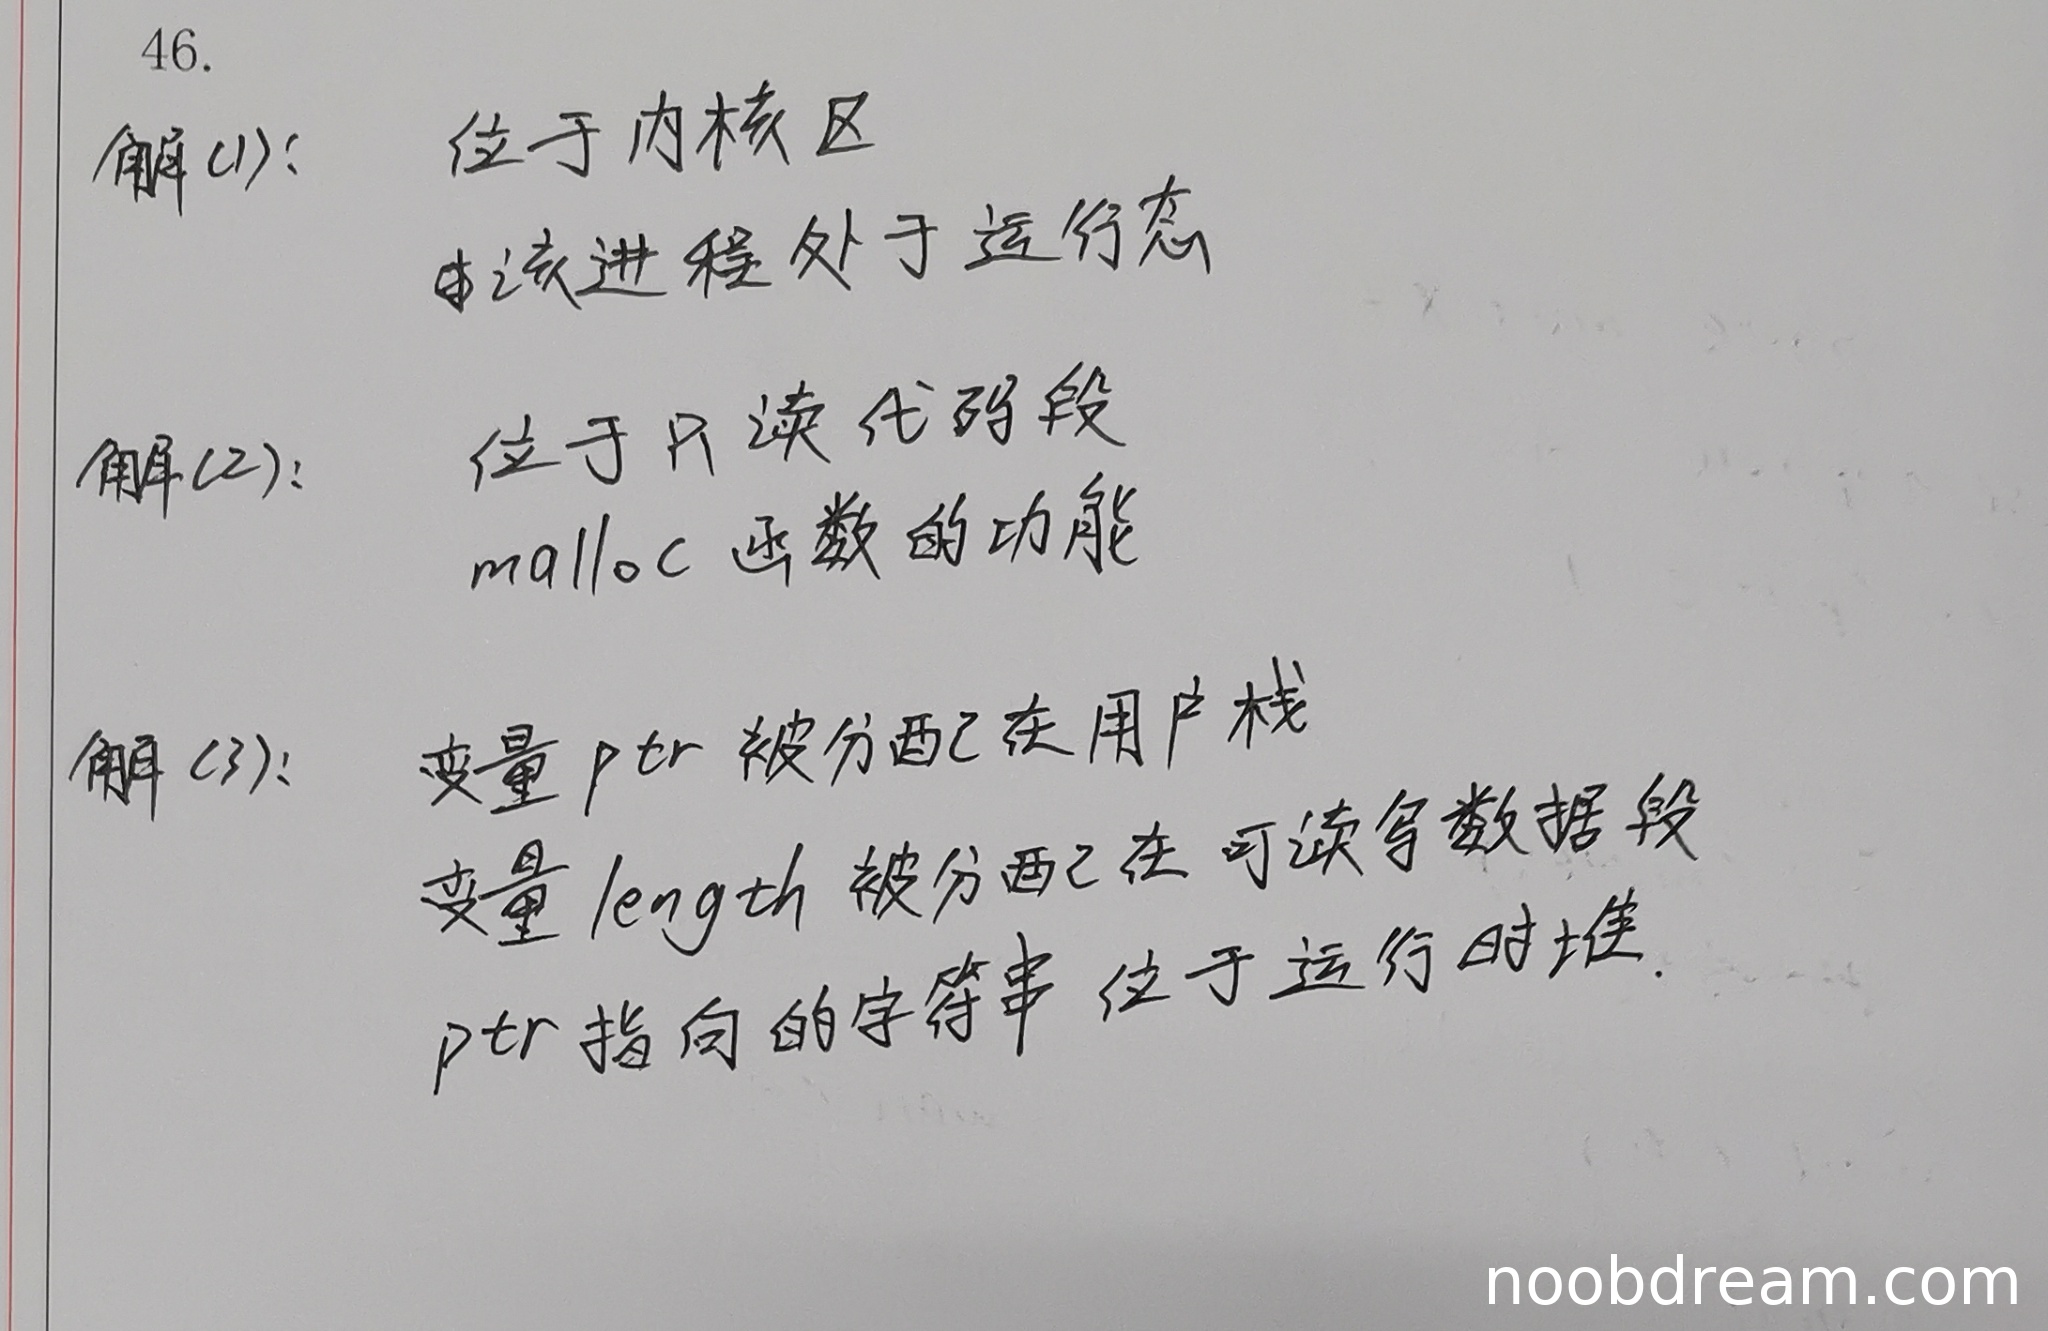 46.
解(1): 位于内核区
该进程处于运行态
解(2): 位于只读代码段
malloc函数的功能
解(3): 变量ptr被分配在用户栈
变量length被分配在可读写数据段
ptr指向的字符串位于运行时堆.
noobdream.com